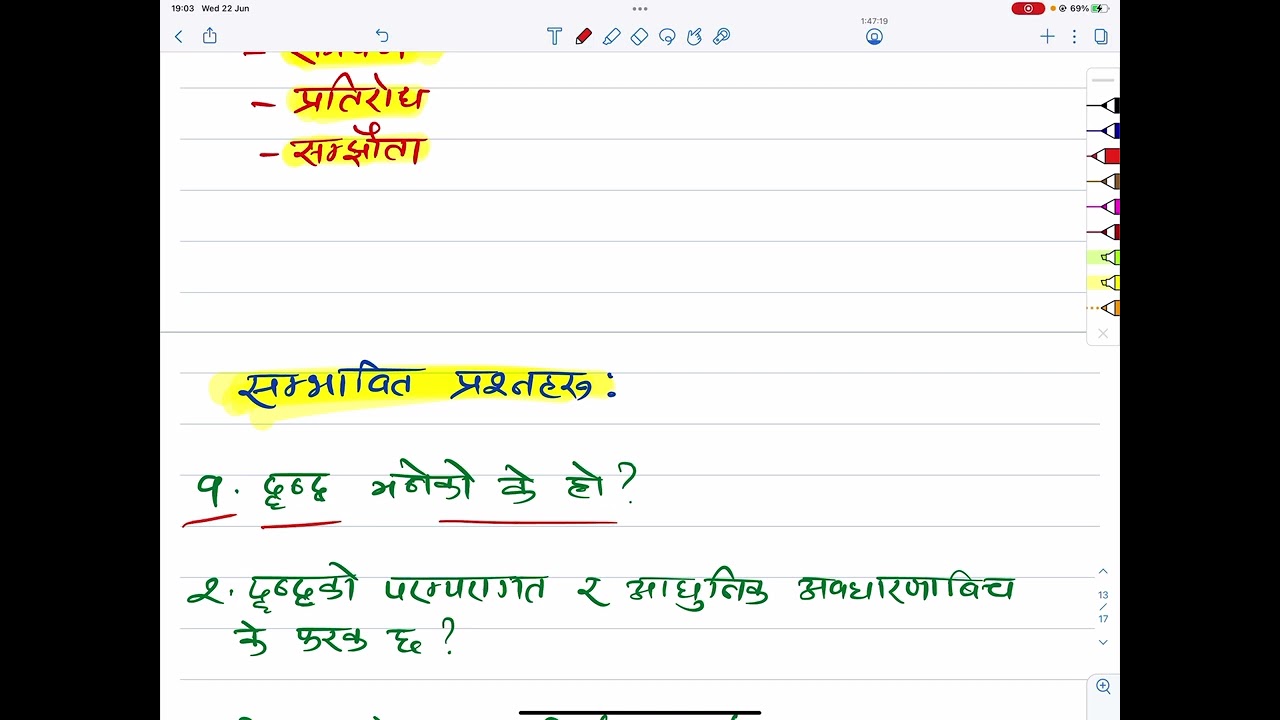 19:03 Wed 22 Jun
69%
1:47:19
T
- प्रतिरोध
- सम्झौता
सम्भावित प्रश्नहरू:
१. द्वन्द्व भनेको के हो?
२. द्वन्द्वको परम्परागत र आधुनिक अवधारणाबिच
के फरक छ?
13
/
17